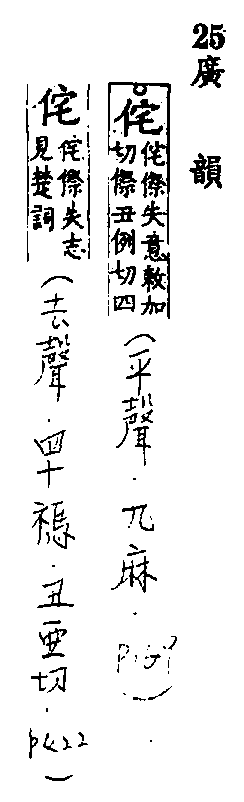 25廣韻
侘侘傺失意敕加
切傺丑例切四
(平聲．九麻．
侘侘傺失志
見楚詞
(去聲．四十禡．丑亞切．P422)